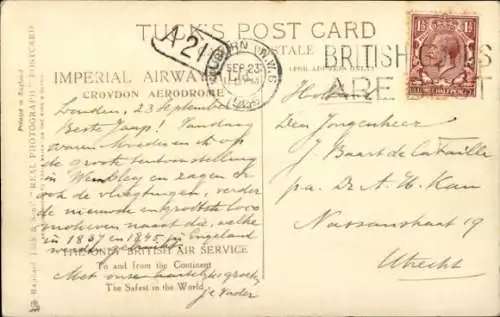 TUCK'S POST CARD
A21
HOLBORN W.C.
SEP 23
BRITISH GOODS
ARE BEST
POSTAGE
THREE HALFPENCE
IMPERIAL AIRWAYS, LTD.
(FOR ADDRESS ONLY.)
CROYDON AERODROME
Printed in England
Raphael Tuck & Sons' "REAL PHOTOGRAPH" POSTCARD
London, 23 September
Beste Jaap! Vandaag
waren Moeder en ik op
de groote tentoonstelling
in Wembley en zagen er
ook de vliegtuigen, verder
de nieuwste en grootste loco
motieven naast die, welke
in 1837 en 1845 in Engeland
THE ONLY BRITISH AIR SERVICE
To and from the Continent
Met onze hartelijke groeten
The Safest in the World
je Vader
Holland
Den Jongenheer
J. Baart de la Faille
pa. Dr. A. H. Kan
Nassaustraat 19
Utrecht